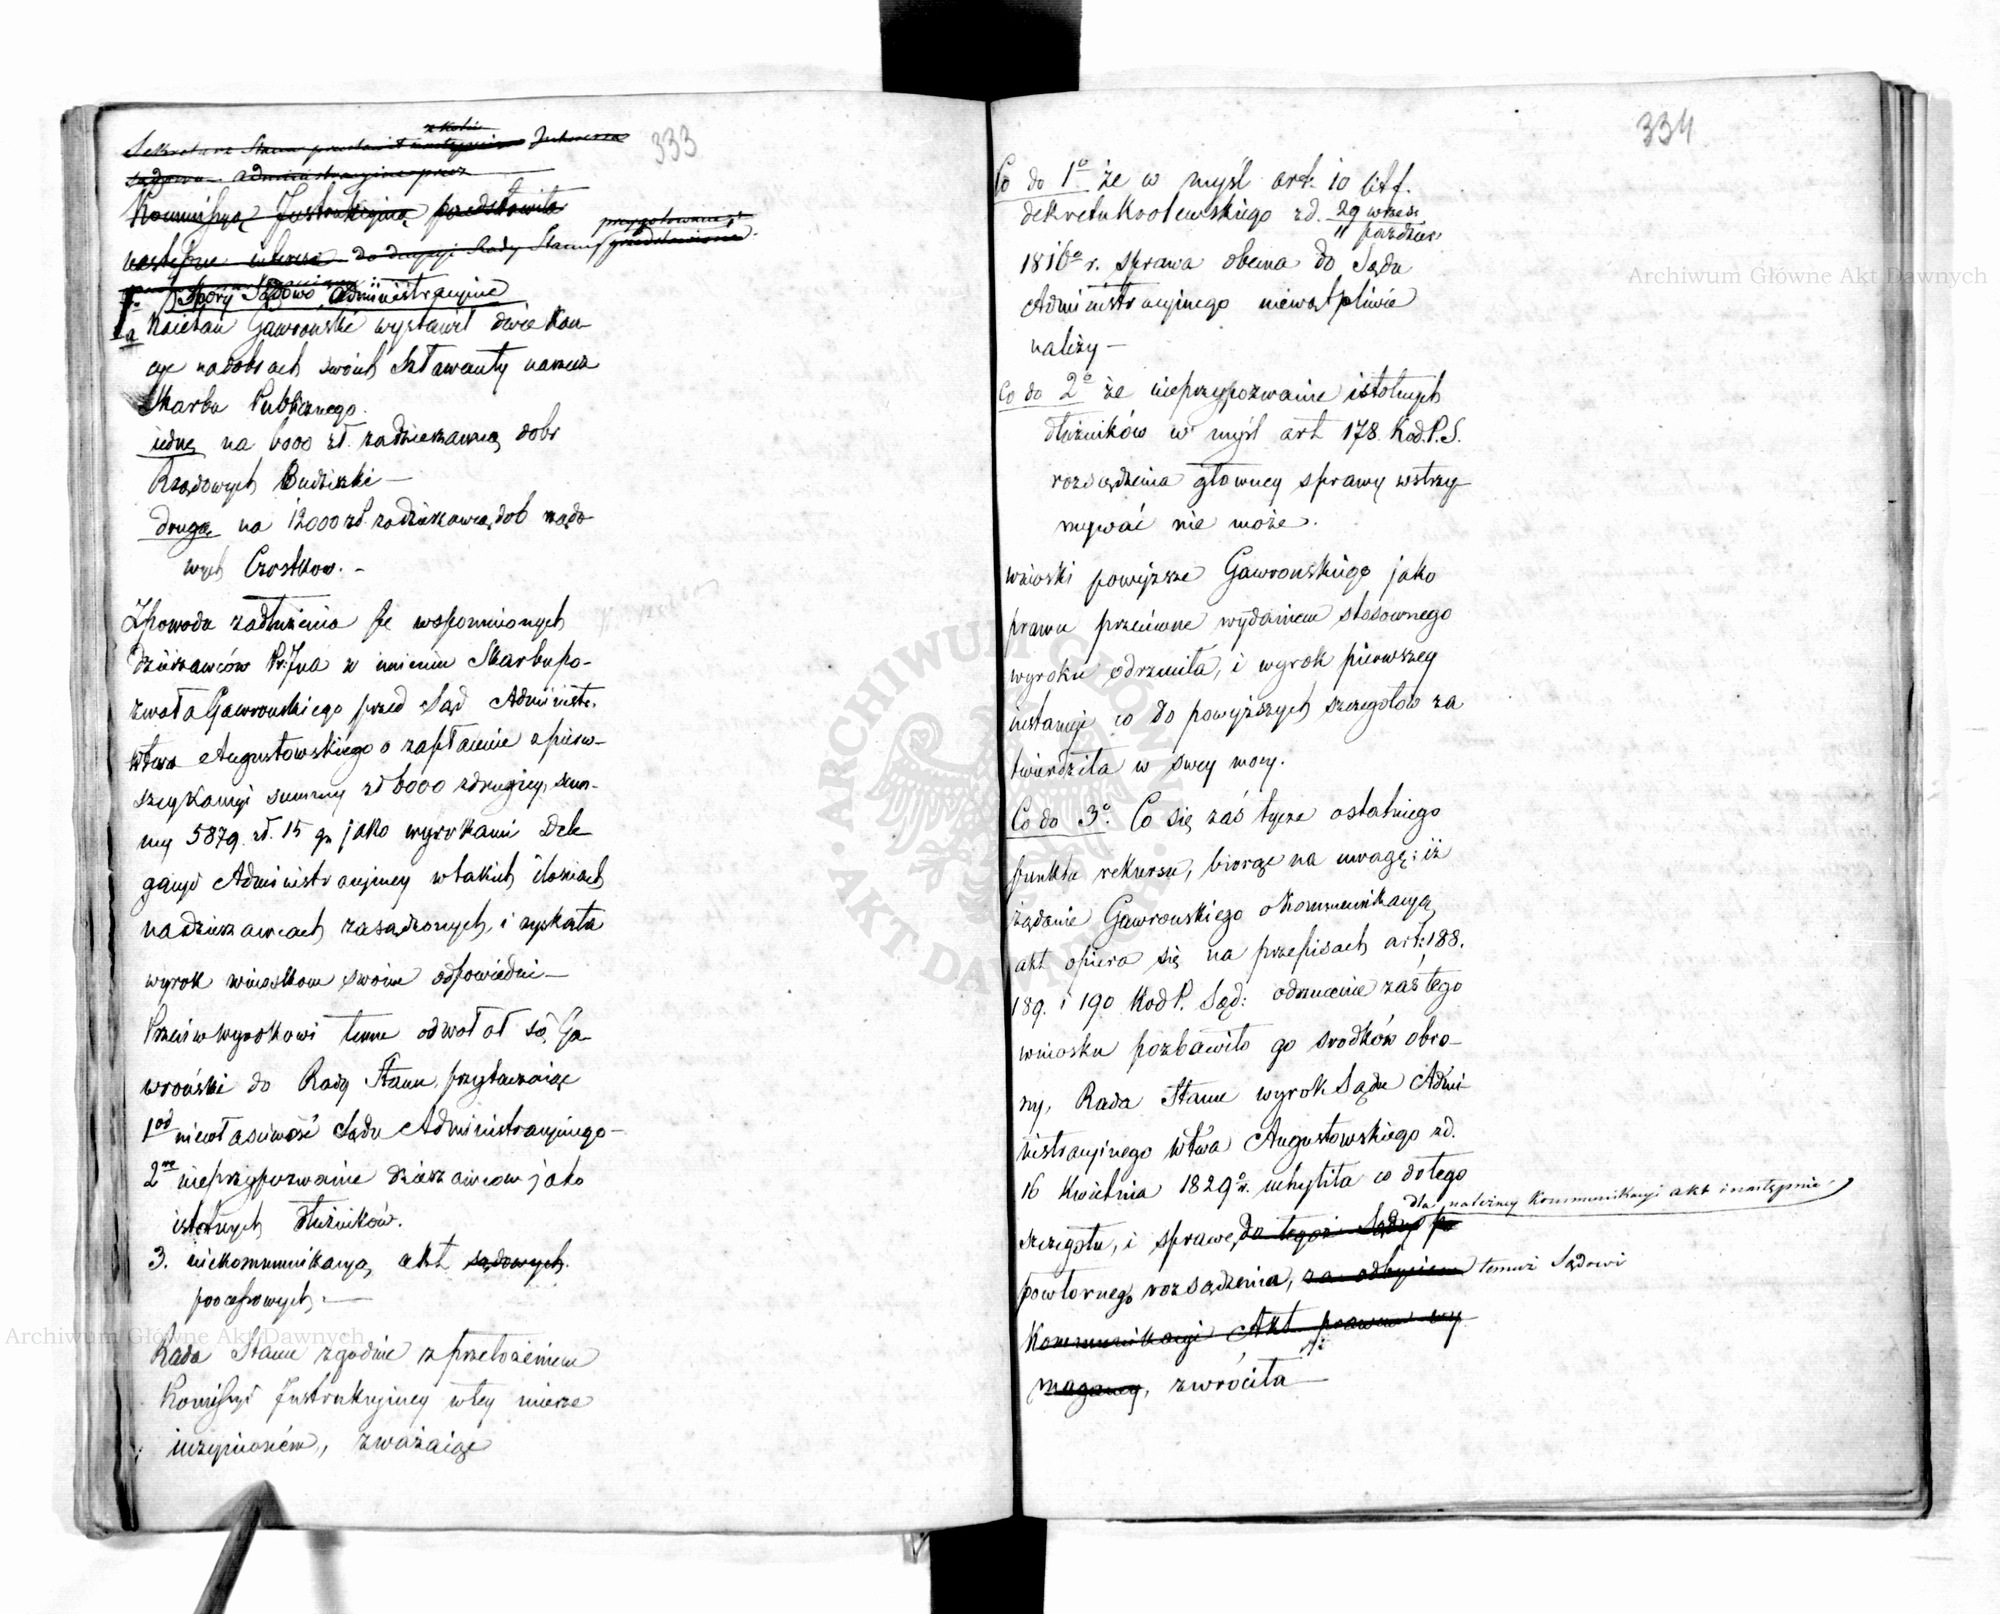 333
z kolei
Sekretarz Stanu przedstawił następnie Interessa
sądowo administracyjne przez
Kommissyą Instrukcyiną przedstawiła
przygotowane
następne do decyzyi Rady Stanu przedstawione.
1. Spory Sądowo administracyine
a Kaietan Gawroński wystawił dwie Kau-
cye na dobrach swoich Sztawenty na rzecz
Skarbu Publicznego.
iedną na 6000 zł. za dzierzawcą dobr
Rządowych Budziski —
drugą na 12000 zł. za dzierzawcą dob rządo
wych Czostkow. —
Z powodu zadłużenia się wspomnionych
dzierzawców Pr. Jna w imieniu Skarbu po-
zwała Gawrońskiego przed Sąd Administr.
Wtwa Augustowskiego o zapłacenie z pierw-
szey Kaucyi summy zł 6000 z drugiey, sum-
my 5879. zł. 15 gr jako wyrokami Dele
gacyi Administracyiney w takich ilościach
na dzierzawcach zasądzonych, i zyskała
wyrok wnioskom swoim odpowiedni —
Przeciw wyrokowi temu odwołał się Ga-
wroński do Rady Stanu, przytaczaiąc
1od niewłaściwość Sądu Administracyinego —
2re nieprzypozwanie dzierzawcow jako
istotnych dłużników.
3. niekommunikacyą akt sądowych.
processowych. —
Rada Stanu zgodnie z przełożeniem
Komissyi Instrukcyiney w tey mierze
uczynionem, zważaiąc
334
Co do 1o że w myśl art. 10 litt. f.
dekretu Krolewskiego z d. 29 wrześ
11 paździer
1816o r. sprawa obecna do Sądu
Administracyinego niewątpliwie
należy —
Co do 2o że nieprzypozwanie istotnych
dłużników w myśl art 178. Kod. P. S.
rozsądzenia głowney sprawy wstrzy-
mywać nie może.
wnioski powyższe Gawrońskiego jako
prawu przeciwne wydaniem stosownego
wyroku odrzuciła, i wyrok pierwszey
instancyi co do powyższych szczegołów za
twierdziła w swey mocy.
Co do 3o. Co się zaś tycze ostatniego
punktu rekursu, biorąc na uwagę: iż
żądanie Gawrońskiego o Kommunikacyą
akt opiera się na przepisach art: 188.
189. i 190 Kod P. Sąd: odrzucenie zaś tego
wniosku pozbawiło go srodków obro-
ny, Rada Stanu wyrok Sądu Admi
nistracyinego Wtwa Augustowskiego z d.
16 Kwietnia 1829o r. uchyliła co do tego
dla należney Kommunikacyi akt i następnie
szczegołu, i sprawę do tegoż Sądu po
powtornego rozsądzenia, za odbyciem temuż Sądowi
Kommunikacyi Akt prawem wy
maganey, zwróciła —
Archiwum Główne Akt Dawnych
Archiwum Główne Akt Dawnych
ARCHIWUM GŁÓWNE AKT DAWNYCH